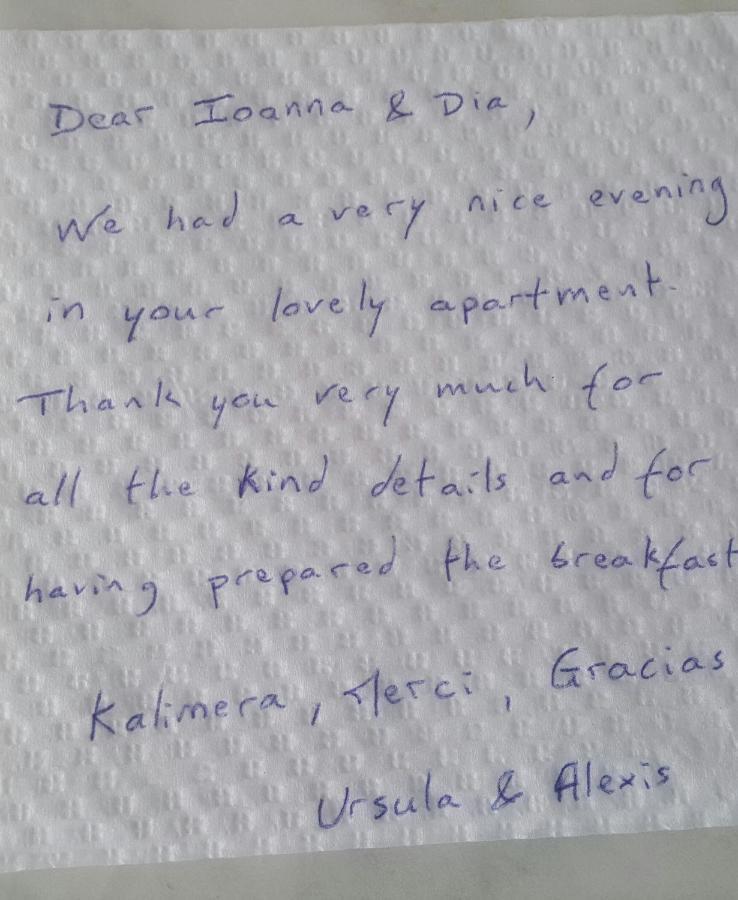 Dear Ioanna & Dia,
We had a very nice evening
in your lovely apartment.
Thank you very much for
all the kind details and for
having prepared the breakfast
Kalimera, Merci, Gracias
Ursula & Alexis